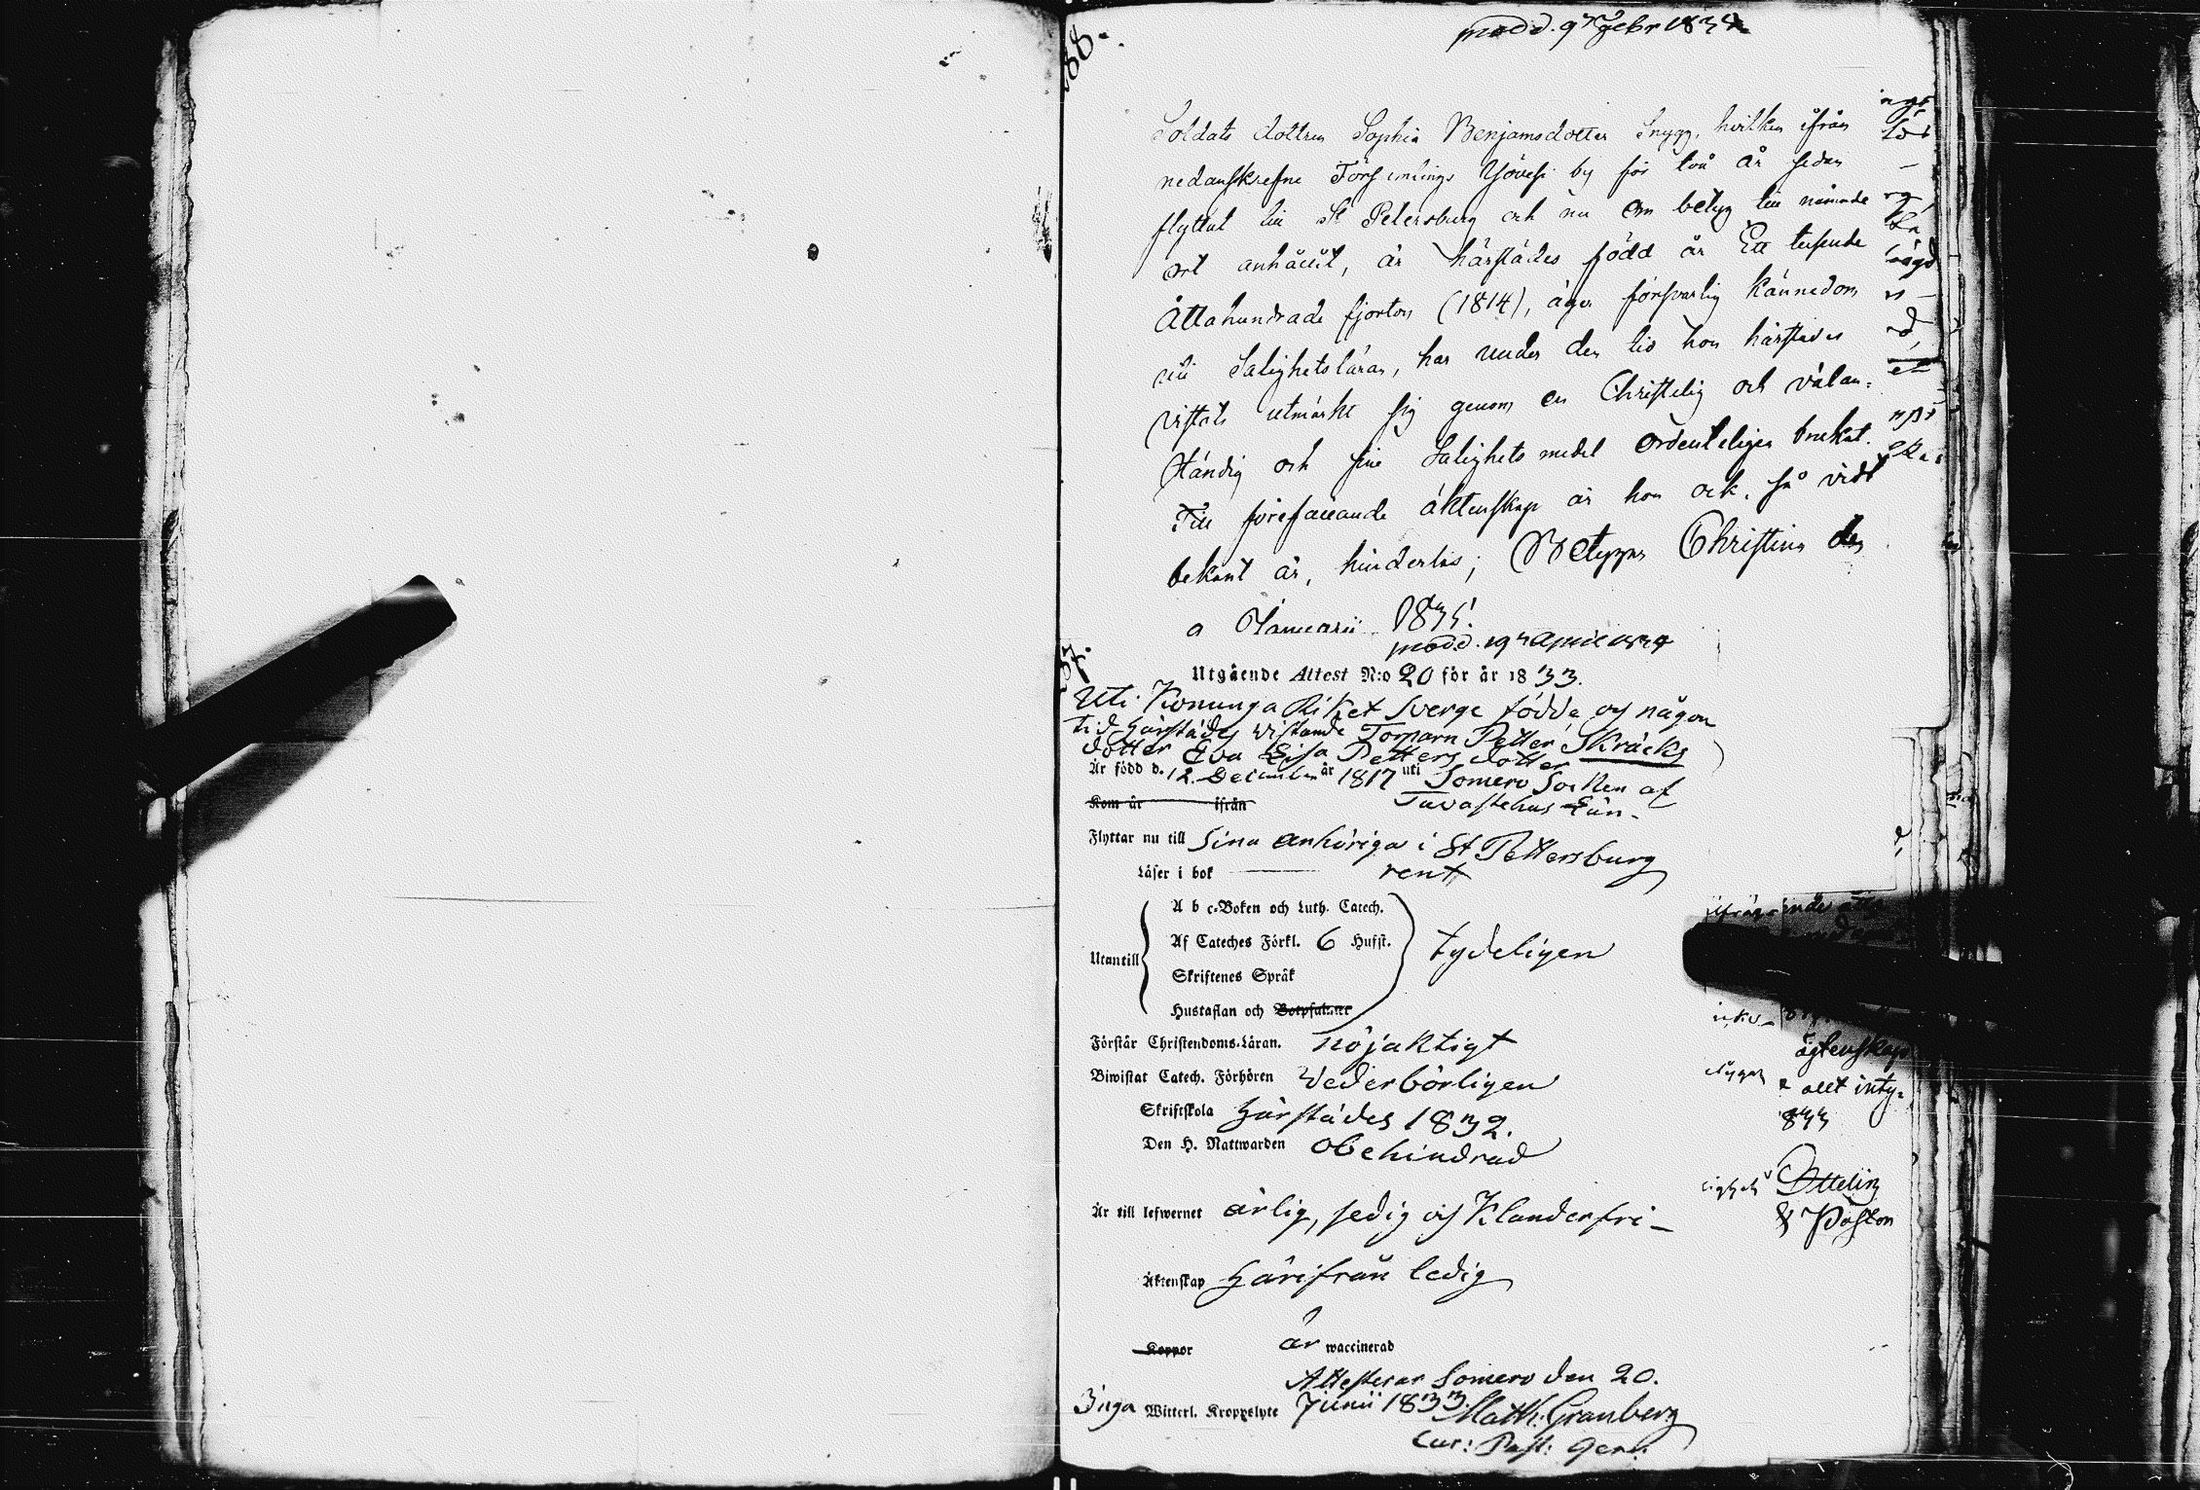 88.
modd. 9 Febr 1834
Soldats dottren Sophia Benjamsdotter Snygg, hvilken ifrån
nedanskrefne Församlings by för två år sedan
flyttat till St Petersburg och nu om betyg till nämnde
ort anhållit, är härstädes född år Ett tusende
Åttahundrade fjorton (1814), äger försvarlig kännedom
uti Salighetsläran, har under den tid hon härstädes
vistats utmärkt sig genom en Christelig och välan-
ständig och sine Salighets medel ordenteligen brukat.
Till förefallande äktenskap är hon ock, så vidt
bekant är, hinderlös; Betygar Christina den
Januarii 1834.
modd. 19 April 1834
Utgående Attest N:o 20 för år 1833.
Uti Konunga Riket Sverge födde och någon
tid härstädes vistande Torparn Petter Skräcks
dotter Eva Lisa Petters dotter
Är född d. 12 December år 1817 uti Somero Socken af
Tavastehus Län.
Kom år ifrån
Flyttar nu till sina anhöriga i St Pettersburg
Läser i bok rent
A b c-Boken och Luth. Catech.
Af Cateches Förkl. 6 Hufst.
Utantill tydeligen
Skriftenes Språk
Hustaflan och Botpsalmer
Förstår Christendoms-Läran. nöjaktigt
Biwistat Catech. Förhören Vederbörligen
Skriftskola härstädes 1832.
Den H. Nattwarden obehindrad
Är till lefwernet ärlig, sedig och Klanderfri
Äktenskap härifrån ledig
Koppor är waccinerad
Attesterar Somero den 20.
Inga Witterl. Kroppslyte Junii 1833. Matth: Granberg
Cur: Past: Gen:
ägtenskap
allt inty-
833
Ottelin
Pastor